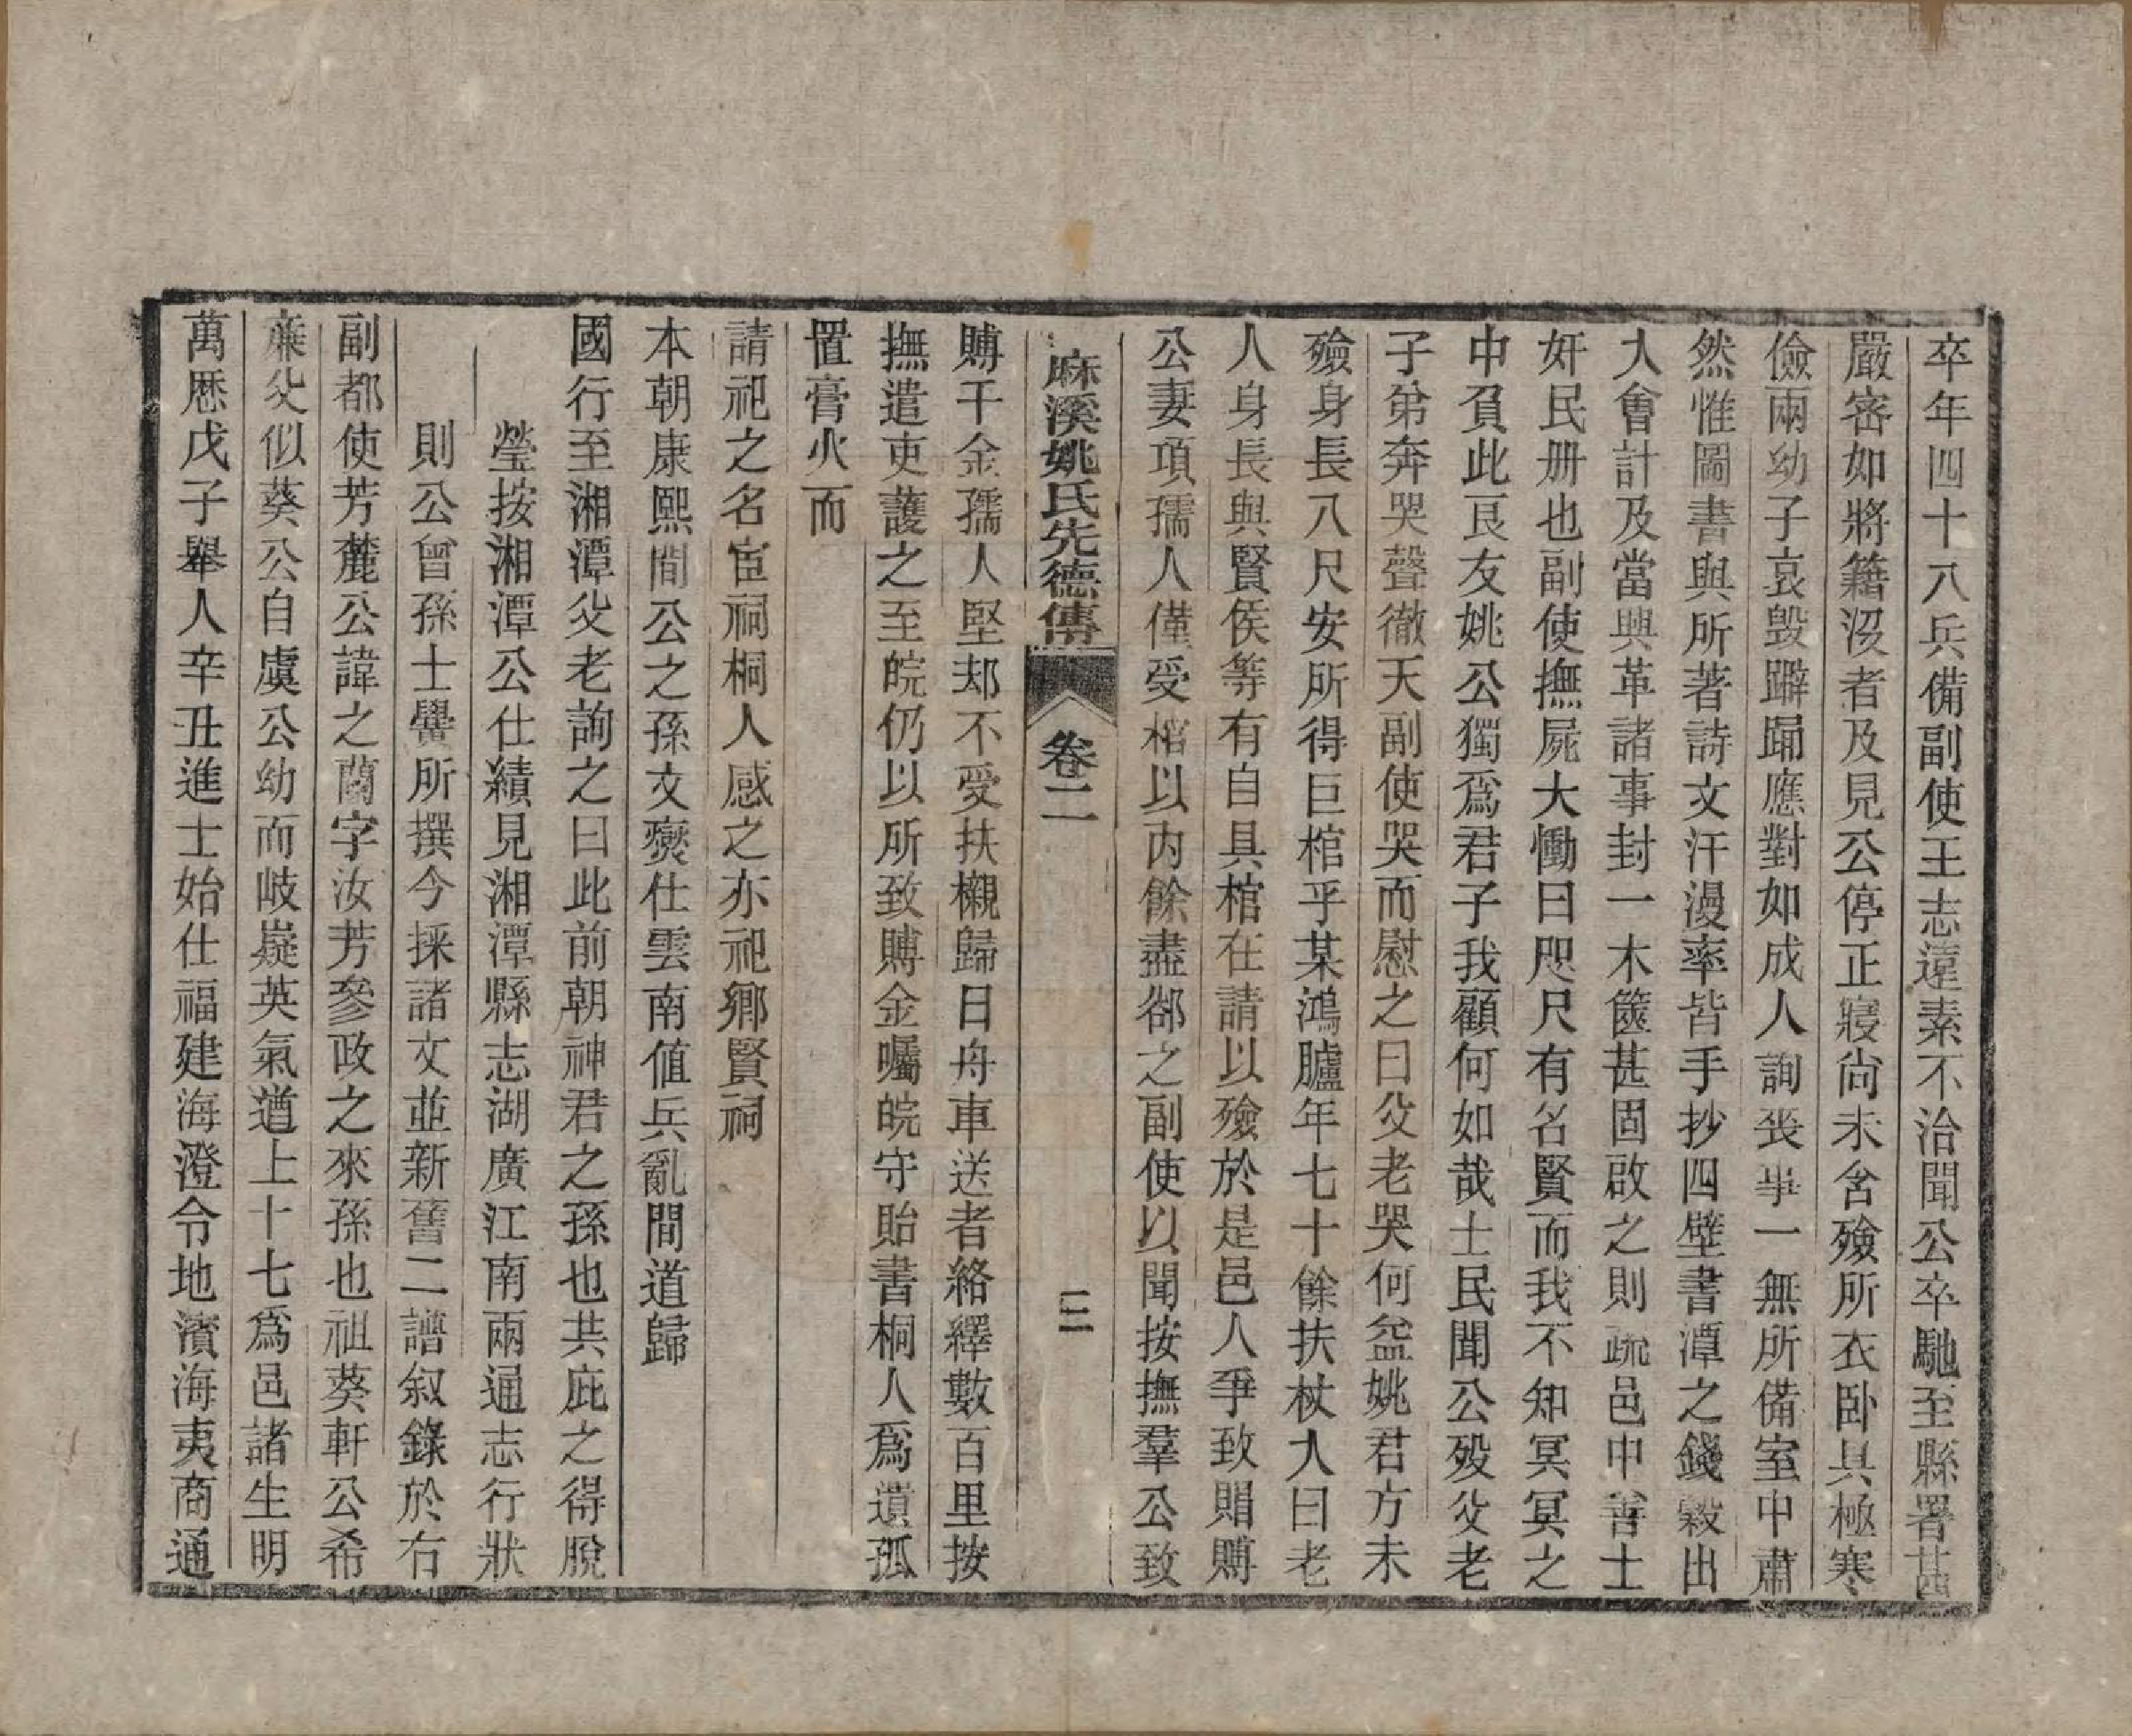 卒年四十八兵備副使王志遠素不洽聞公卒馳至縣署甚
嚴密如將籍沒者及見公停正寢尚未含殮所衣卧具極寒
儉兩幼子哀毀躃踊應對如成人詢喪事一無所備室中肅
然惟圖書與所著詩文汗漫率皆手抄四壁書潭之錢穀出
大會計及當興革諸事封一木篋甚固啟之則疏邑中善士
奸民册也副使撫屍大慟曰咫尺有名賢而我不知冥冥之
中負此良友姚公獨爲君子我顧何如哉士民聞公殁父老
子弟奔哭聲徹天副使哭而慰之曰父老哭何益姚君方未
殮身長八尺安所得巨棺乎某鴻臚年七十餘扶杖大曰老
人身長與賢侯等有自具棺在請以殮於是邑人爭致賵賻
公妻項孺人僅受棺以內餘盡郤之副使以聞按撫羣公致
麻溪姚氏先德傳 卷二 三
賻千金孺人堅却不受扶櫬歸日舟車送者絡繹數百里按
撫遣吏護之至皖仍以所致賻金囑皖守貽書桐人爲遺孤
置膏火而
請祀之名宦祠桐人感之亦祀鄉賢祠
本朝康熙間公之孫文燮仕雲南値兵亂間道歸
國行至湘潭父老詢之曰此前朝神君之孫也共庇之得脫
瑩按湘潭公仕績見湘潭縣志湖廣江南兩通志行狀
則公曾孫士黌所撰今採諸文並新舊二譜叙錄於右
副都使芳麓公諱之蘭字汝芳參政之來孫也祖葵軒公希
廉父似葵公自虞公幼而岐嶷英氣遒上十七爲邑諸生明
萬厯戊子舉人辛丑進士始仕福建海澄令地濱海夷商通